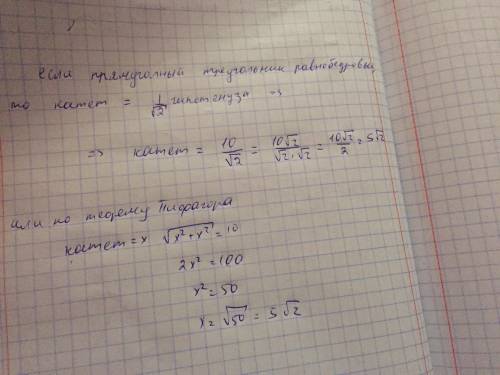 если прямоуголный треугольник равнобедренный
то катет = 1/√2 гипотенузы ⇒
⇒ катет = 10/√2 = 10√2/√2·√2 = 10√2/2 = 5√2
или по теорему Пифагора
катет = x √x²+x² = 10
2x² = 100
x² = 50
x = √50 = 5√2